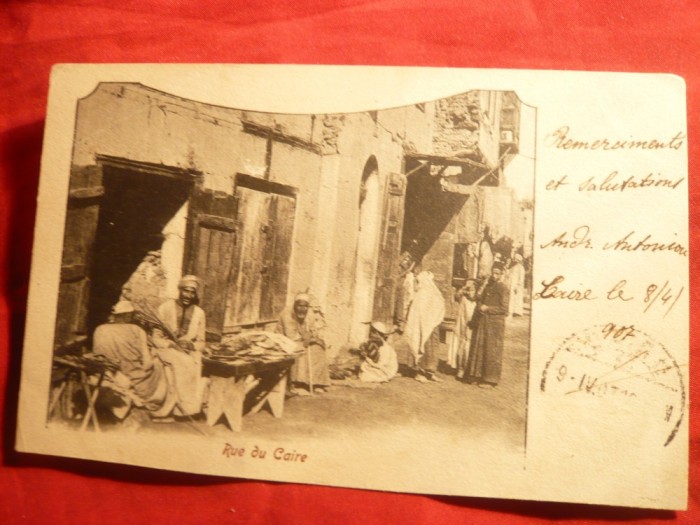 Remerciments
et salutations
Andr. Antoniou
Caire le 8/4/
907
9-IV
Rue du Caire